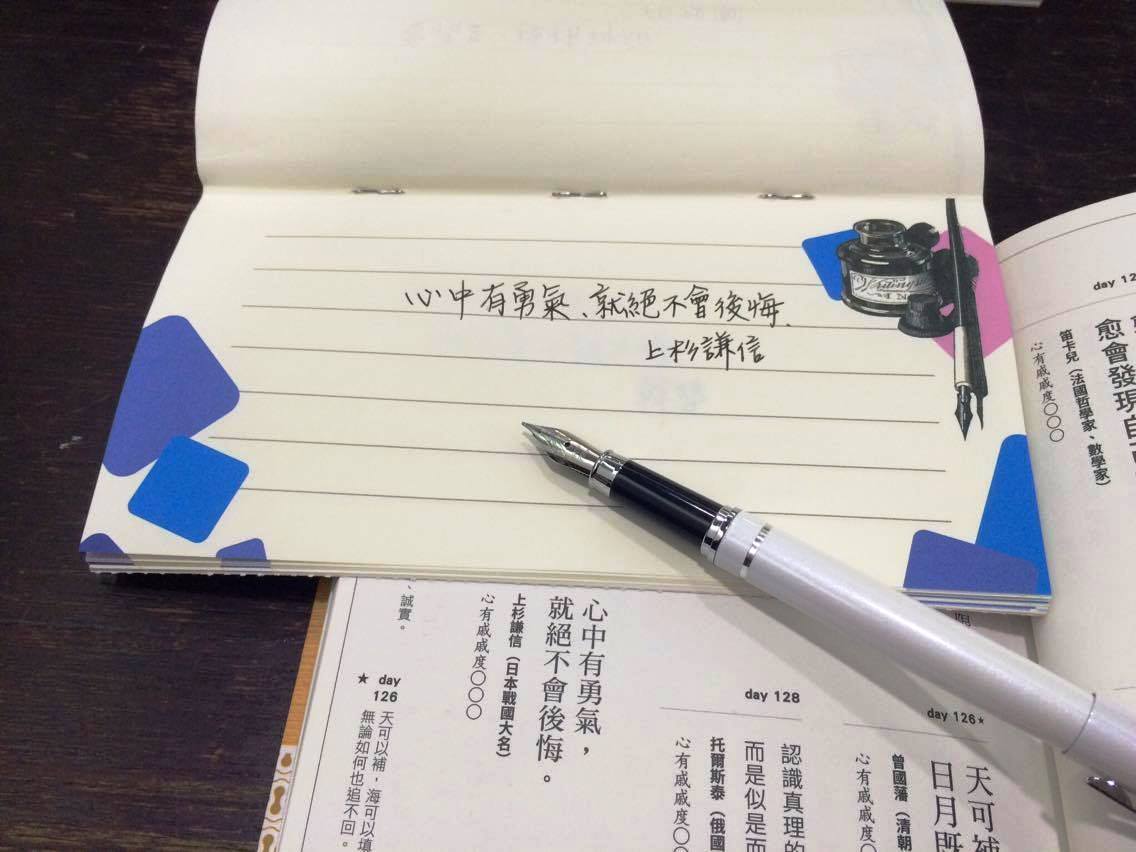 心中有勇氣、就絕不會後悔、
上杉謙信
day 12
愈會發現自
笛卡兒（法國哲學家、數學家）
心有戚戚度○○○
day 126★
天可補
日月既
曾國藩（清朝
心有戚戚度○
day 128
認識真理的
而是似是而
托爾斯泰（俄國
心有戚戚度○○
心中有勇氣，
就絕不會後悔。
上杉謙信（日本戰國大名）
心有戚戚度○○○
、誠實。
★ day
126
天可以補，海可以填
無論如何也追不回。